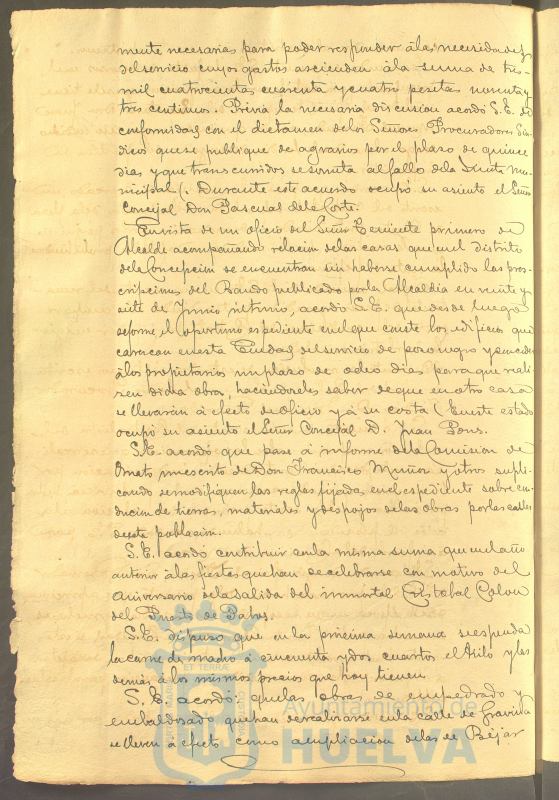 mente necesarias para poder responder á las necesidades
del servicio cuyos gastos ascienden á la suma de tres
mil cuatrocientas cuarenta y cuatro pesetas noventa y
tres centimos. Prévia la necesaria discusion acordó S.E. de
conformidad con el dictamen de los Señores Procuradores Sin
dicos que se publique de agrarios por el plazo de quince
dias y que transcurridos se someta al fallo de la Junta Mu
nicipal (. Durante este acuerdo ocupó su asiento el Señor
Concejal Don Pascual de la Corte.
En vista de un oficio del Señor Teniente primero de
Alcalde acompañando relacion de las casas que en el distrito
de la Concepcion se encuentran sin haberse cumplido las pres
cripciones del Bando publicado por la Alcaldia en veinte y
siete de Junio último, acordó S.E. que desde luego
se forme el oportuno espediente en el que conste los edificios que
carecen en esta Ciudad del servicio de pozo negro y se conceda
á los propietarios un plazo de ocho dias para que reali
zen dicha obra, haciendoles saber de que en otro caso
se llevarán á efecto de oficio y á su costa (En este estado
ocupó su asiento el Señor Concejal D. Juan Pons.
S.E. acordó que pase á informe de la Comision de
Ornato un escrito de Don Francisco Muñoz y otros supli
cando se modifiquen las reglas fijadas en el espediente sobre con
duccion de tierras, materiales y despojos de las obras por las calles
de esta poblacion.
S.E. acordó contribuir con la misma suma que en el año
anterior á las fiestas que han de celebrarse con motivo del
aniversario de la salida del inmortal Cristobal Colon
del Puerto de Palos.
S.E. dispuso que en la próxima semana se espenda
la carne de macho á cincuenta y dos cuartos el Asilo y las
demás á los mismos precios que hoy tienen.
S.E. acordó que las obras de empedrado y
embaldosado que han de realizarse en la calle de Gravina
se lleven á efecto como ampliacion de las de Béjar
Ayuntamiento de
HUELVA